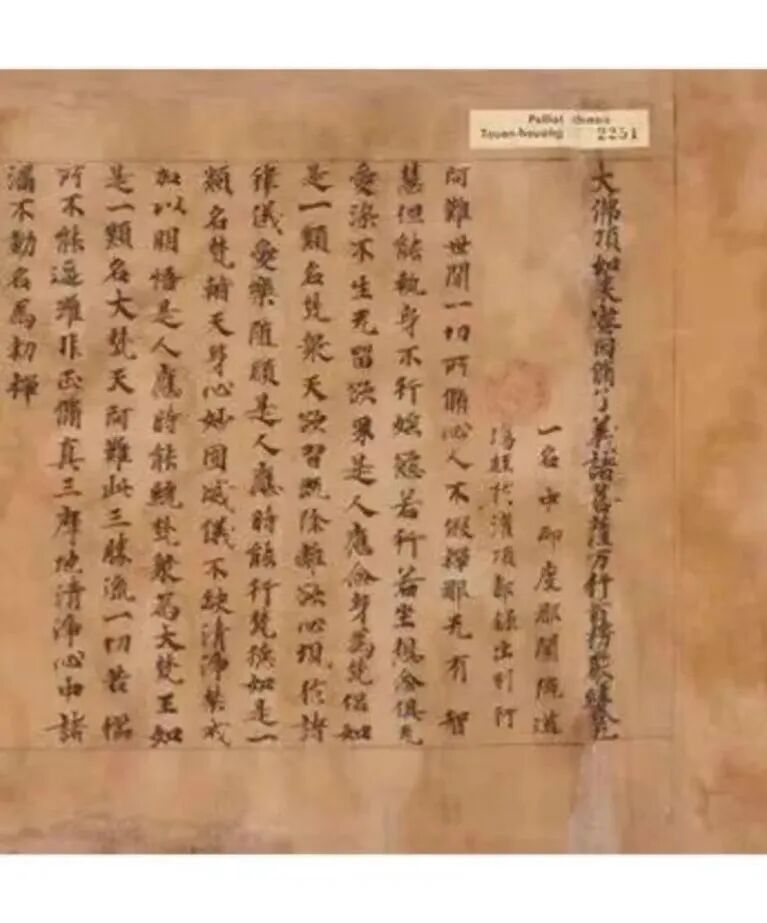 Pelliot chinois
Touen-houang 2251
大佛頂如来密因脩證了義諸菩薩万行首楞嚴經卷九
一名中印度那蘭陁道
場經於灌頂部録出別行
阿難世間一切所脩心人不假禪那无有智
慧但能執身不行婬慾若行若坐想念俱无
愛染不生无留欲界是人應念身為梵侣如
是一類名梵衆天欲習既除離欲心現於諸
律儀愛樂随順是人應時能行梵德如是一
類名梵輔天身心妙圎威儀不缺清淨禁戒
加以明悟是人應時能統梵衆為大梵王如
是一類名大梵天阿難此三勝流一切苦惱
所不能逼雖非正脩真三摩地清淨心中諸
漏不動名為初禪